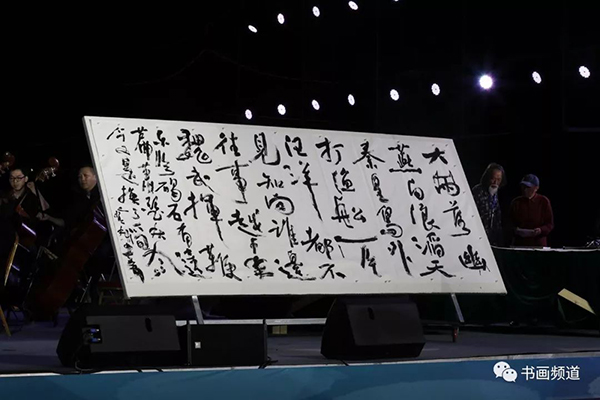 大雨落幽
燕白浪滔天
秦皇島外
打漁船一片
汪洋都不
見知向誰邊
往事越千年
魏武揮鞭
东臨碣石有遗篇
蕭瑟秋風
今又是换了人间
书画频道